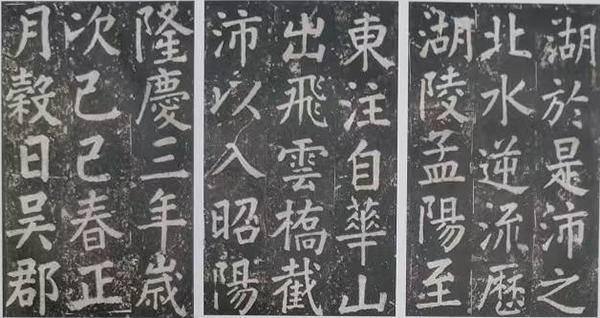 湖於是沛之
北水逆流歷
湖陵孟陽至
東注自華山
出飛雲橋截
沛以入昭陽
隆慶三年歲
次己巳春正
月穀日吳郡